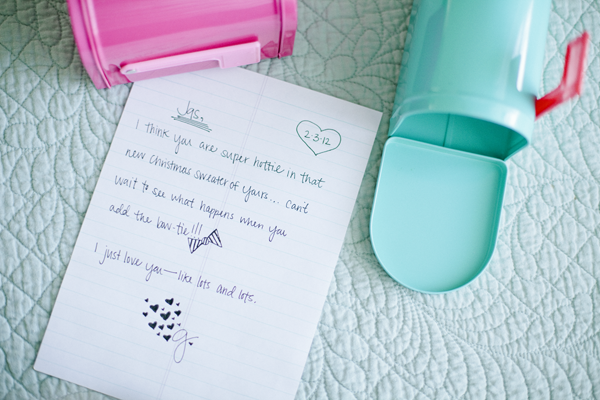 Jas,
2·3·12
I think you are super hottie in that
new Christmas sweater of yours... can't
wait to see what happens when you
add the bow-tie!!!
I just love you—like lots and lots.
g